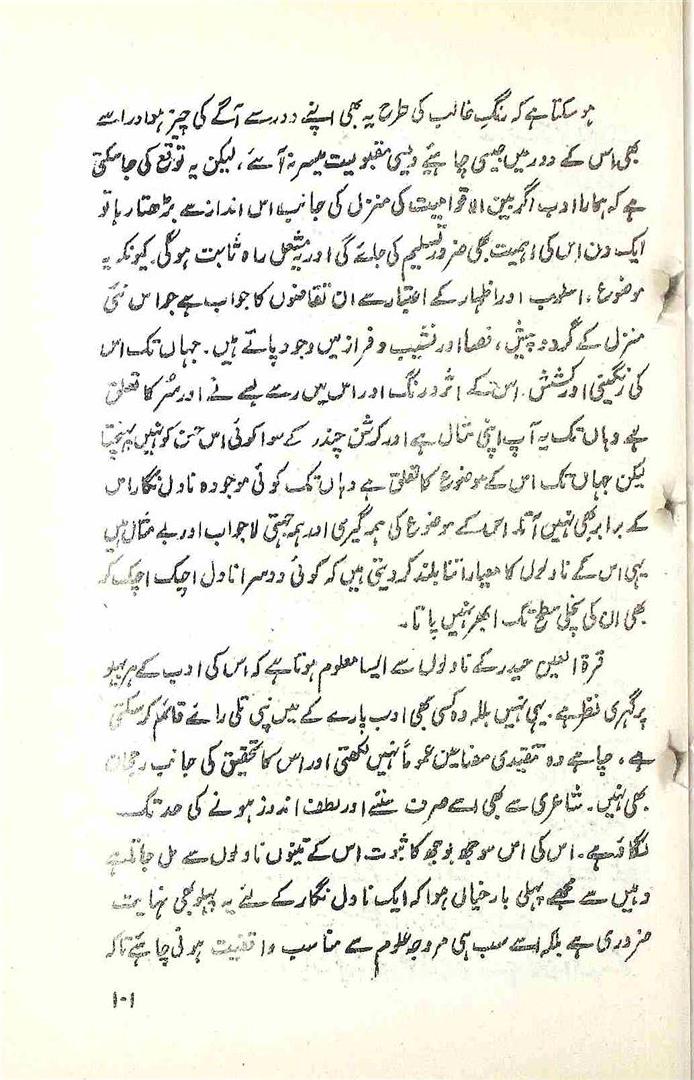 ہو سکتا ہے کہ رنگِ غالب کی طرح یہ بھی اپنے دور سے آگے کی چیز ہو اور اسے
بھی اس کے دور میں جیسی چاہیے ویسی مقبولیت میسر نہ آئے، لیکن یہ توقع کی جا سکتی
ہے کہ ہمارا ادب اگر بین الاقوامیت کی منزل کی جانب اس انداز سے بڑھتا رہا تو
ایک دن اس کی اہمیت بھی ضرور تسلیم کی جائے گی اور یہ مشعل راہ ثابت ہوگی۔ کیونکہ یہ
موضوع، اسلوب اور اظہار کے اعتبار سے ان تقاضوں کا جواب ہے جو اس نئی
منزل کے گرد و پیش، فضا اور نشیب و فراز میں وجود پاتے ہیں۔ جہاں تک اس
کی رنگینی اور کشش، اس کے اثر و رنگ اور اس میں رسے بسے نے اور سُر کا تعلق
ہے وہاں تک یہ آپ اپنی مثال ہے اور کرشن چندر کے سوا کوئی اس حسن کو نہیں پہنچتا
لیکن جہاں تک اس کے موضوع کا تعلق ہے وہاں تک کوئی موجودہ ناول نگار اس
کے برابر بھی نہیں آتا۔ اس کے موضوع کی ہمہ گیری اور ہمہ جہتی لاجواب اور بے مثال ہیں
یہی اس کے ناولوں کا معیار اتنا بلند کر دیتی ہیں کہ کوئی دوسرا ناول اچک اچک کر
بھی ان کی نچلی سطح تک ابھر نہیں پاتا۔
قرۃ العین حیدر کے ناولوں سے ایسا معلوم ہوتا ہے کہ اس کی ادب کے ہر پہلو
پر گہری نظر ہے۔ یہی نہیں بلکہ وہ کسی بھی ادب پارے کے میں نپی تلی رائے قائم کر سکتی
ہے، چاہے وہ تنقیدی مضامین عموماً نہیں لکھتی اور اس کا تحقیق کی جانب رجحان
بھی نہیں۔ شاعری سے بھی اسے صرف سننے اور لطف اندوز ہونے کی حد تک
لگاؤ ہے۔ اس کی اس سوجھ بوجھ کا ثبوت اس کے تینوں ناولوں سے مل جاتا ہے
وہیں سے مجھے پہلی بار خیال ہوا کہ ایک ناول نگار کے لئے یہ پہلو بھی نہایت
ضروری ہے بلکہ اسے سب ہی مروجہ علوم سے مناسب واقفیت ہونی چاہئے تاکہ
۱۰۱